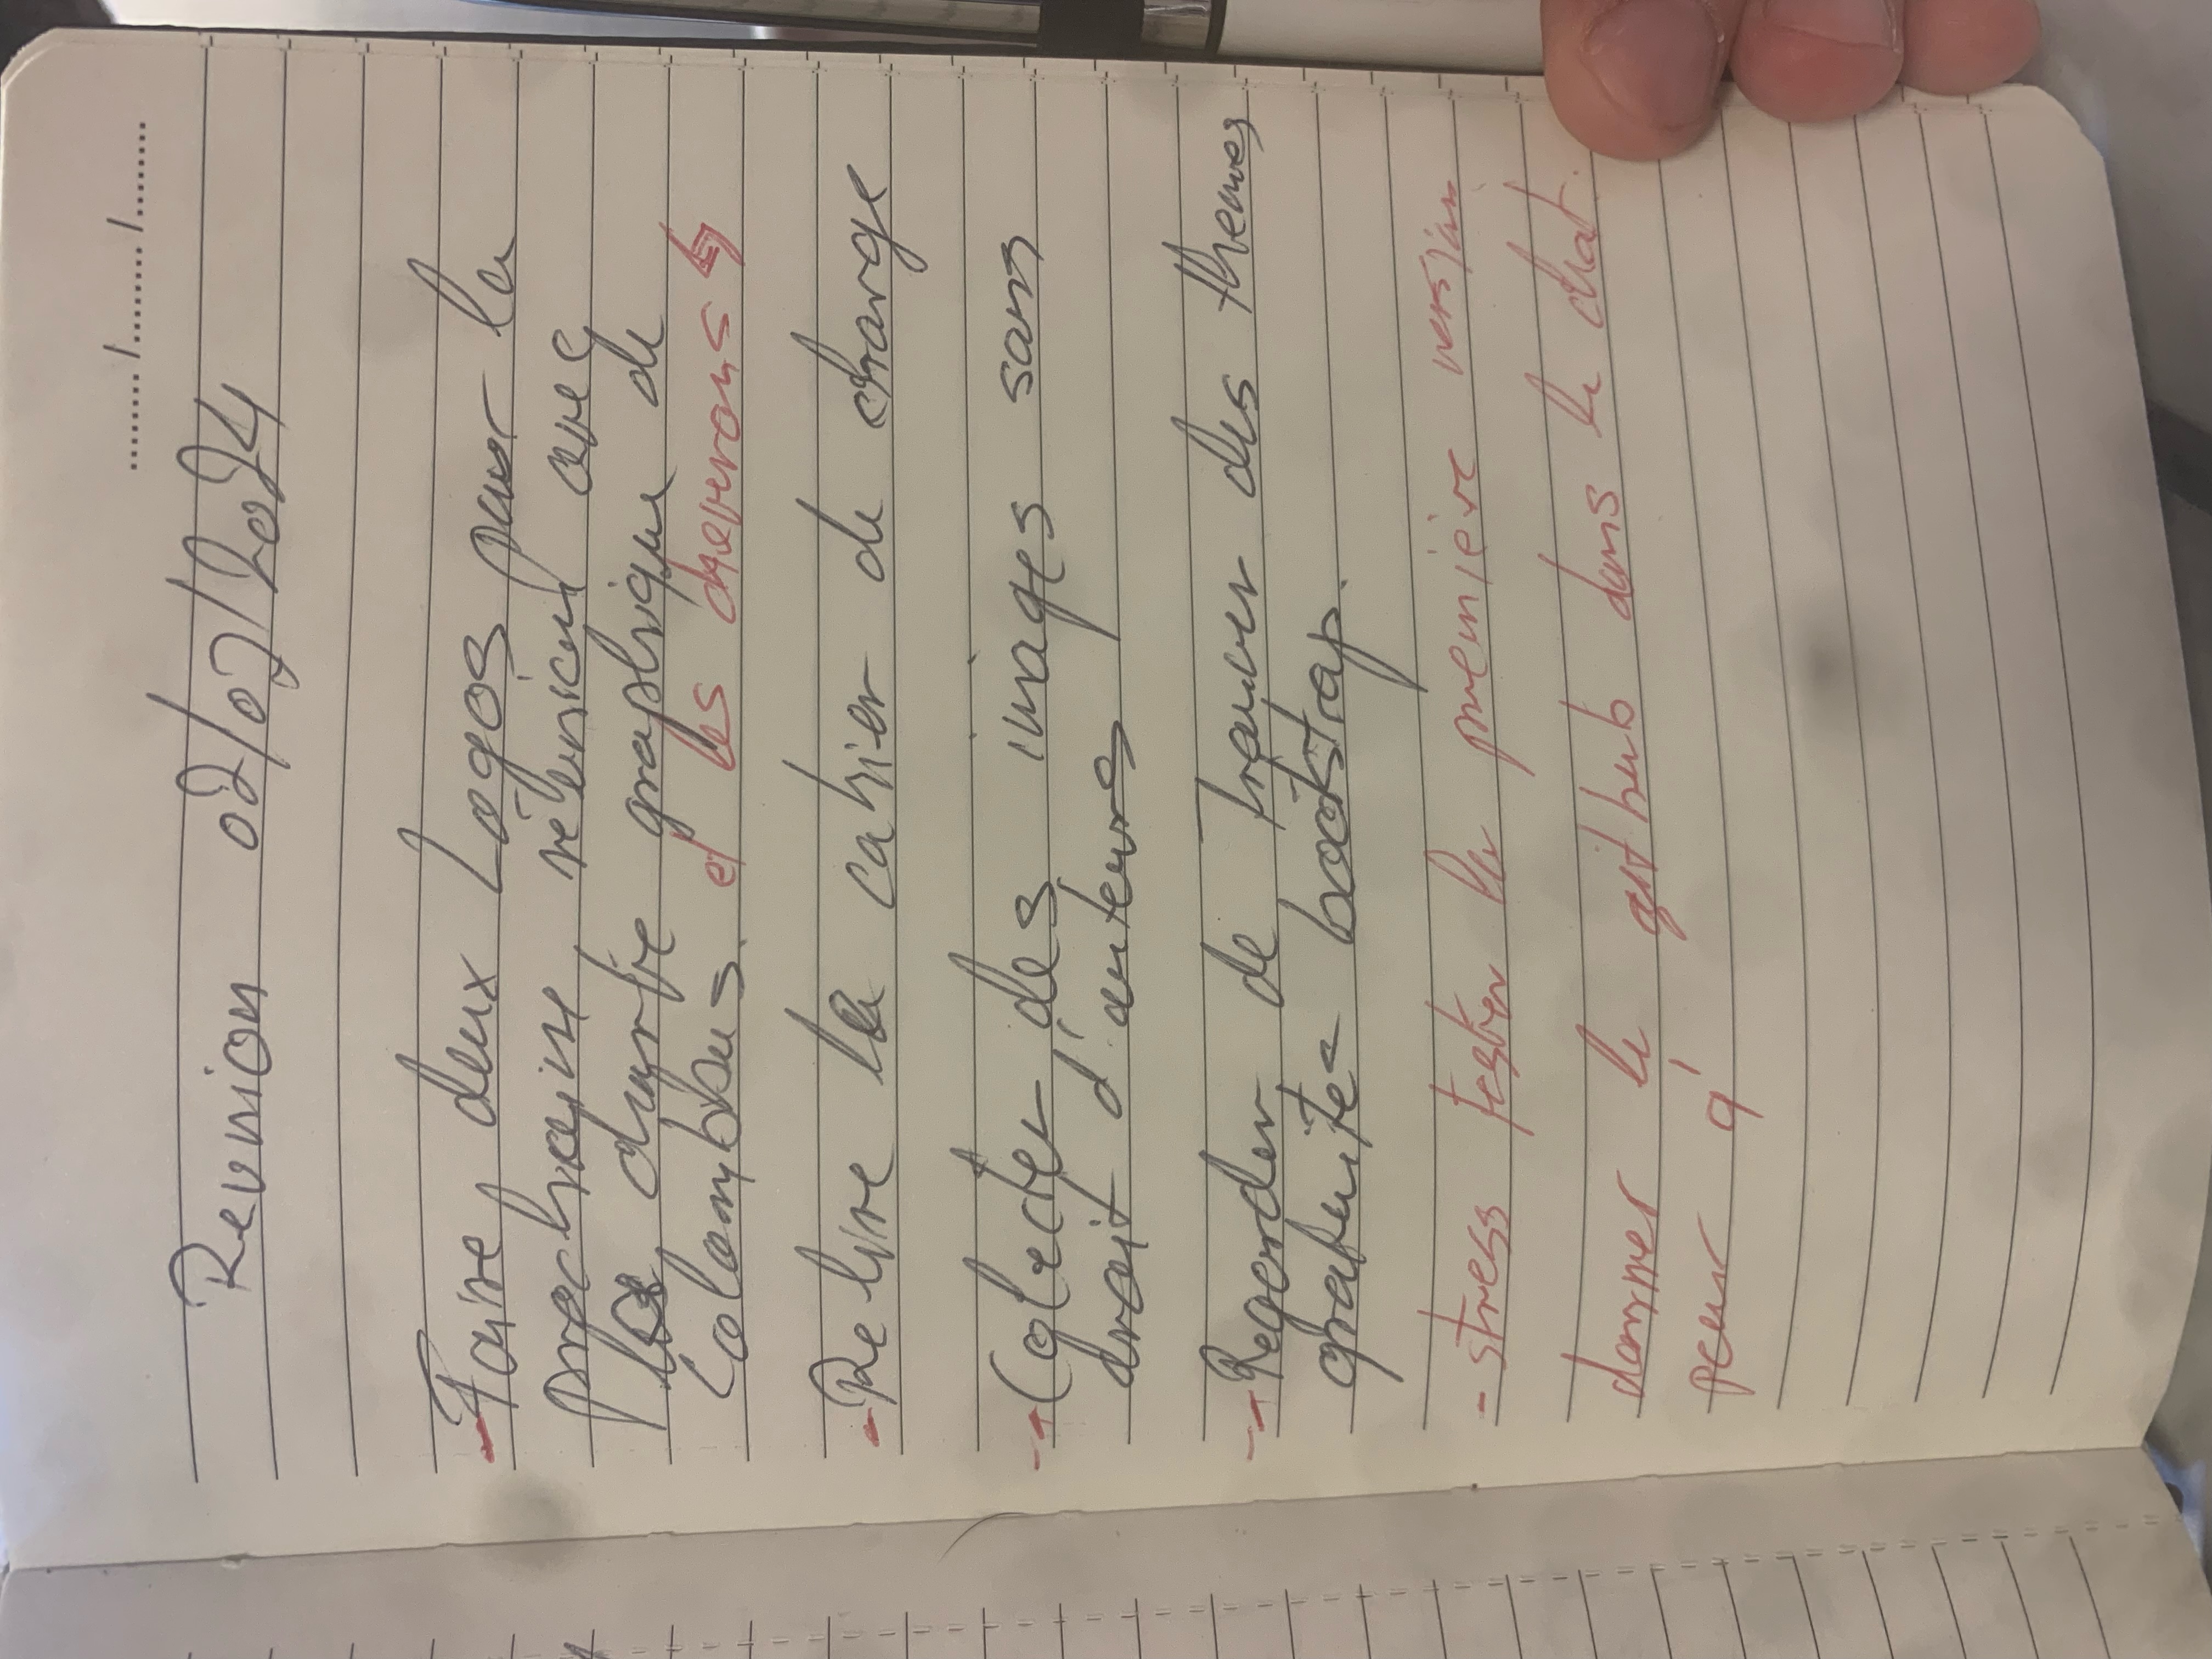 Reunion 02/07/2024
- Faire deux Logos pour la
prochaine réunion avec
la charte graphique de
Colombbus. et les cheverons
- Relire le cahier de charge
- Colecter des images sans
droit d'auteures
- Regarder de Trouver des themes
gratuites bootstrap.
- stress tester la première version
donner le github dans le chat.
pour q'